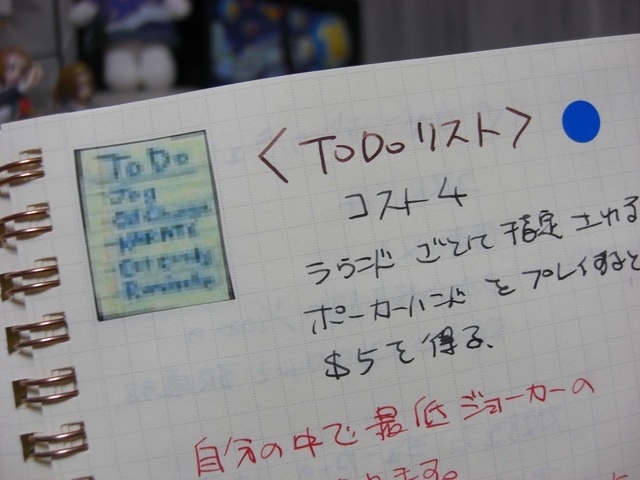 To Do
<ToDoリスト>
コスト4
ラウンドごとに指定される
ポーカーハンドをプレイすると
$5を得る.
自分の中で最低ジョーカーの
ります。